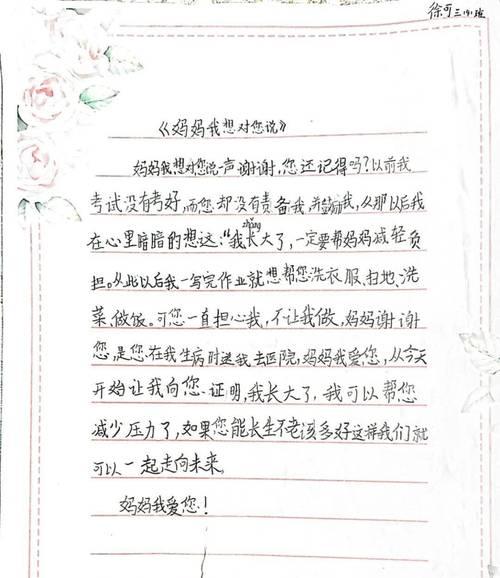 徐可三(4)班
《妈妈我想对您说》
妈妈我想对您说一声谢谢,您还记得吗?以前我
考试没有考好,而您却没有责备我,并鼓励我,从那以后我
在心里暗暗的想这:“我长zhǎng大了,一定要帮妈妈减轻负
担。从此以后我一写完作业就想帮您洗衣服、扫地、洗
菜、做饭。可您一直担心我,不让我做,妈妈谢谢
您,是您在我生病时送我去医院,妈妈我爱您,从今天
开始让我向您证明,我长大了,我可以帮您
减少压力了,如果您能长生不老该多好这样我们就
可以一起走向未来。
妈妈我爱您!